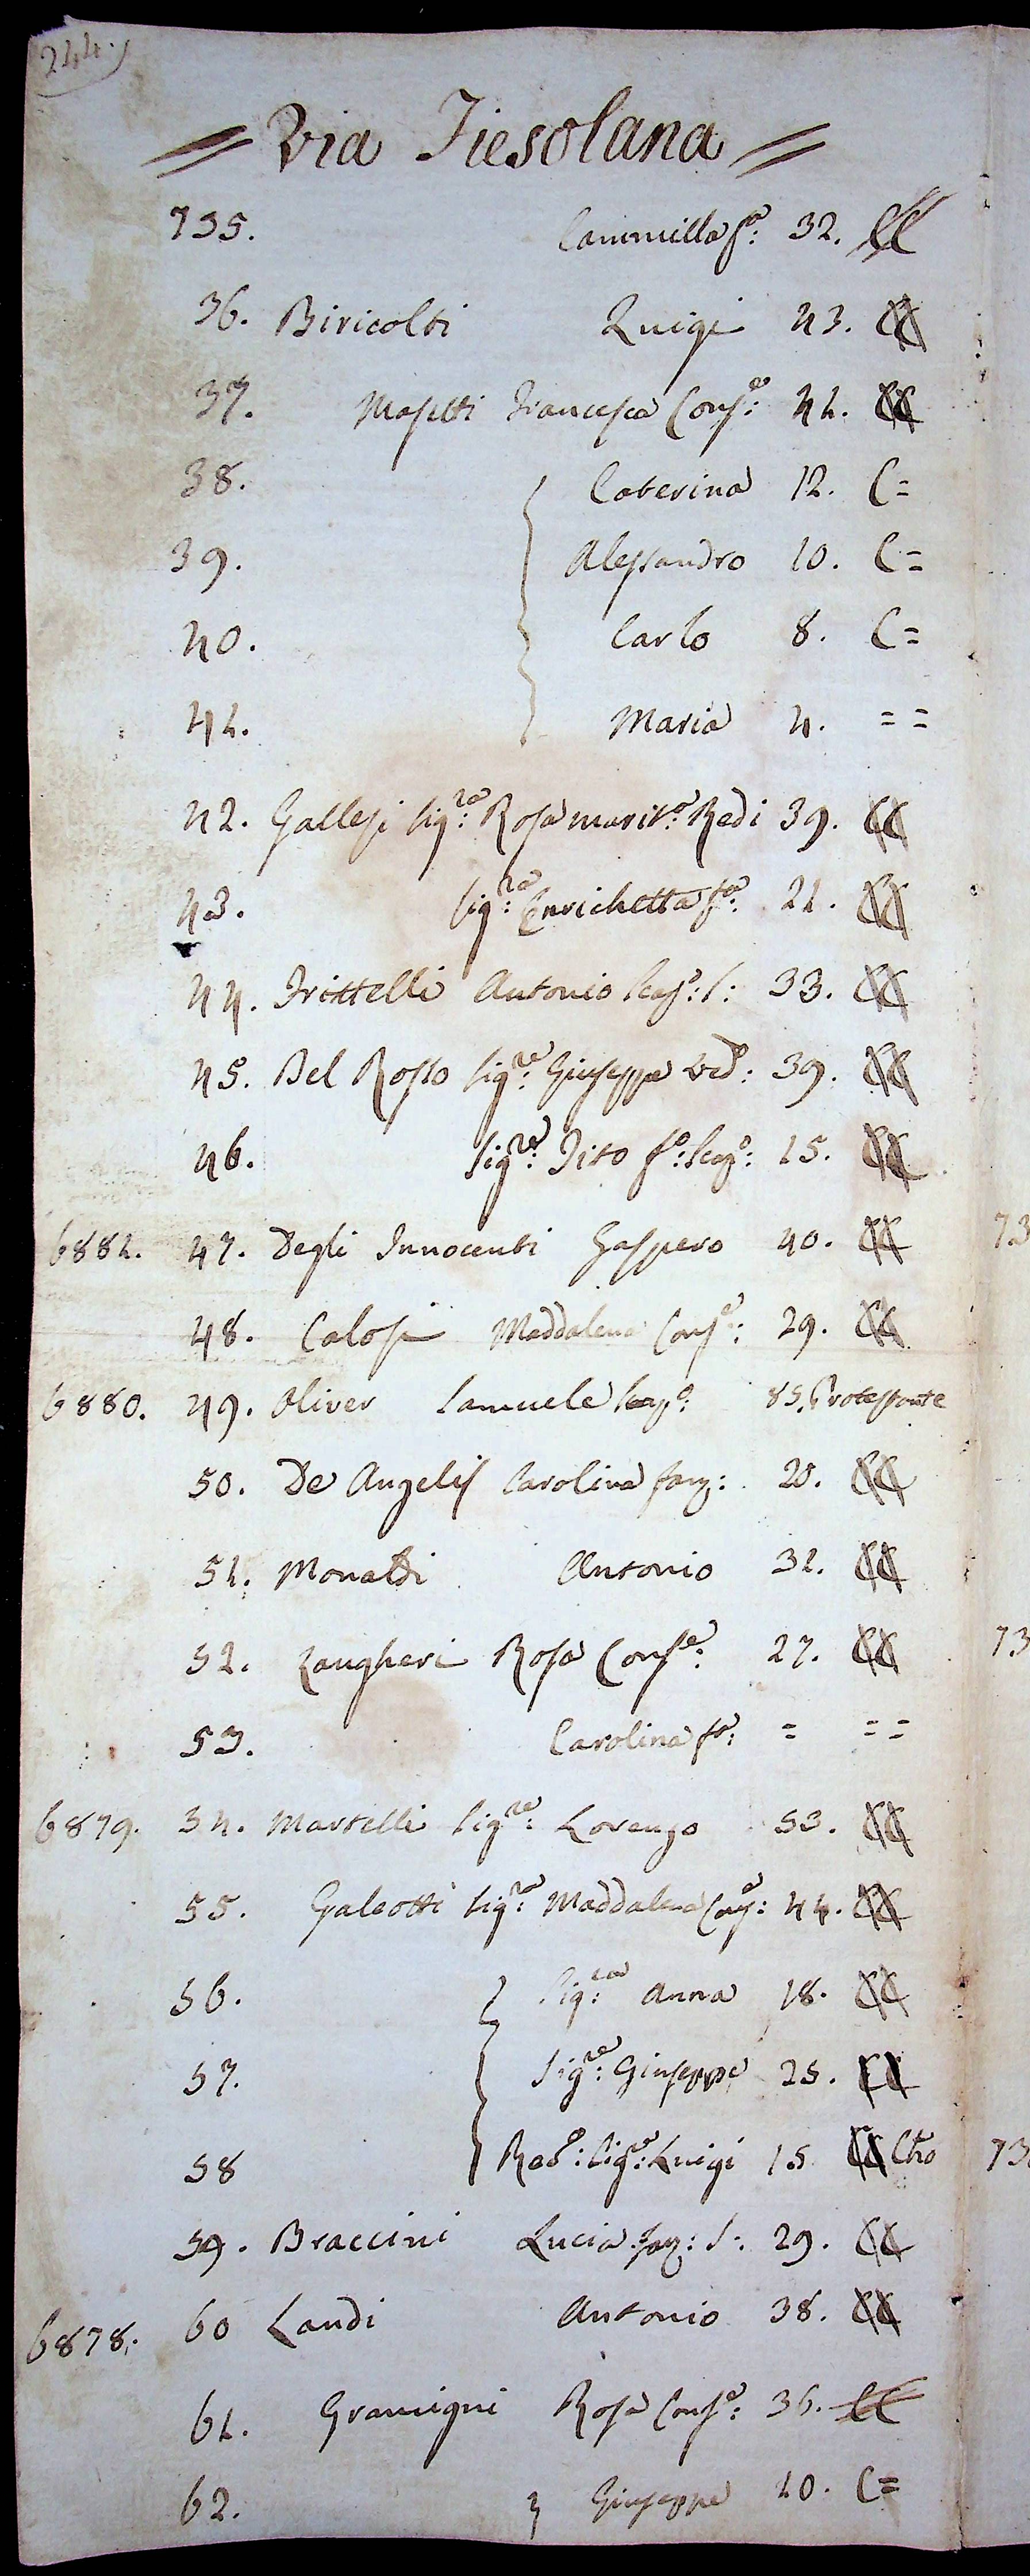 244.
= Via Fiesolana =
735. Cammilla fa: 32. CC
36. Biricolti Luigi 43. CC
37. Masetti Francesca Conse: 41. CC
38. Caterina 12. C=
39. Alessandro 10. C=
40. Carlo 8. C=
41. Maria 4. = =
42. Gallesi Sigra: Rosa marita: Redi 39. CC
43. Sigra: Enrichetta fa: 21. CC
44. Frittelli Antonio Scapo: S: 33. CC
45. Del Rosso Sigre: Giuseppe vedo: 39. CC
46. Sigre: Tito fo: Scapo: 15. CC
6881. 47. Degli Innocenti Gaspero 40. CC
48. Calosi Maddalena Conse: 29. CC
6880. 49. Oliver Samuele Scapo: 85. Protestante
50. De Angelis Carolina fanz: 20. CC
51. Monaldi Antonio 31. CC
52. Zangheri Rosa Conse: 27. CC
53. Carolina fa: = = =
6879. 54. Martelli Sigre: Lorenzo 53. CC
55. Galeotti Sigra: Maddalena Conse: 44. CC
56. Sigra: Anna 18. CC
57. Sigre: Giuseppe 25. CC
58 Redo: Sigre: Luigi 15 CC Cho
59. Braccini Lucia fanz: S: 29. CC
6878. 60 Landi Antonio 38. CC
61. Gramigni Rosa Conse: 36. CC
62. Giuseppe 10. C=
73
73
73